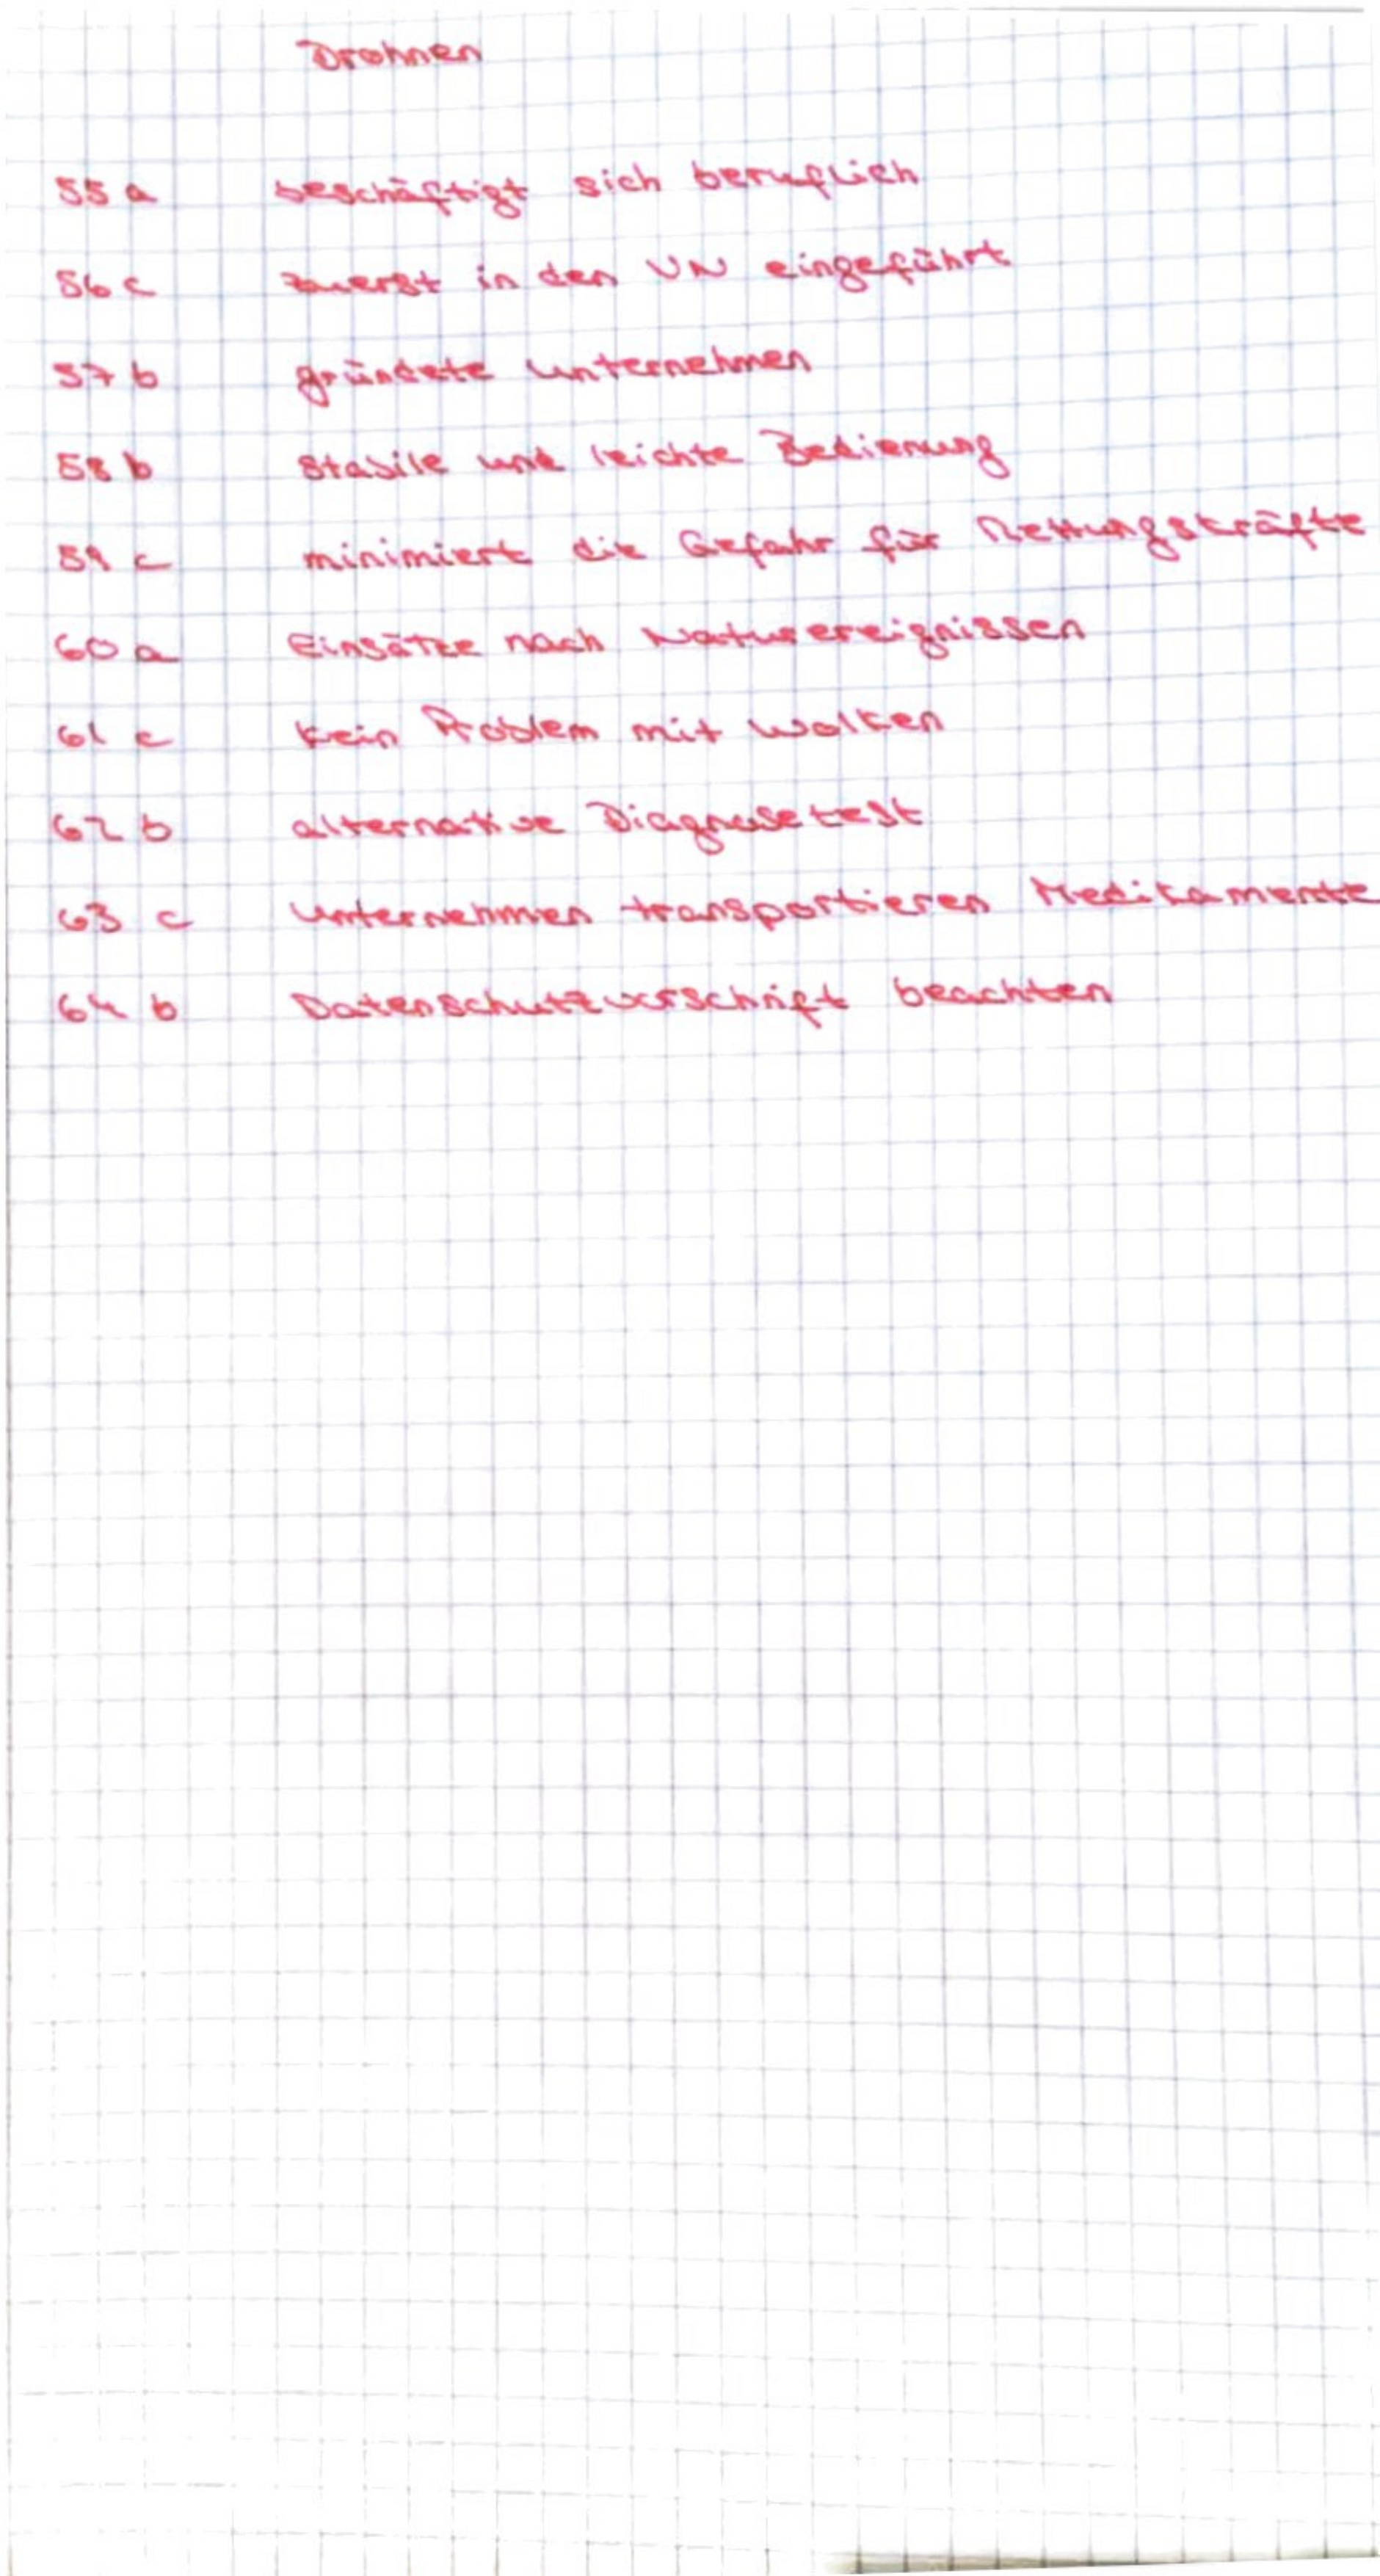 Drohnen
55 a beschäftigt sich beruflich
56 c zuerst in den UN eingeführt
57 b gründete Unternehmen
58 b stabile und leichte Bedienung
59 c minimiert die Gefahr für Rettungskräfte
60 a Einsätze nach Naturereignissen
61 c kein Problem mit Wolken
62 b alternative Diagnosetest
63 c Unternehmen transportieren Medikamente
64 b Datenschutzvorschrift beachten